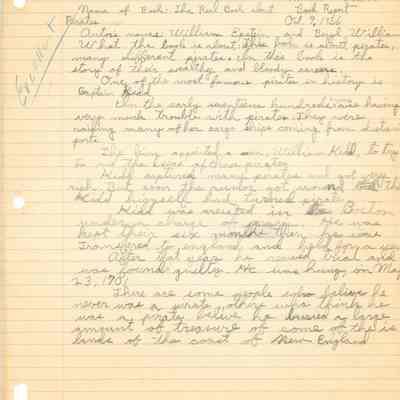 Name of Book: The Real Book about Book Report
Pirates Oct. 9, 1956
Excellent
Autors names: William Epstein and Beryl William
What the book is about: This book is about pirates,
many different pirates. In this book is the
story of their worthy and bloody careers.
One of the most famous pirates in history is
Captain Kidd
In the early seventeen hundreds having
very much trouble with pirates. They were
many of her cargo ships coming from distant
ports.
The king appointed a man, William Kidd, to try
to rid the of these pirates.
Kidd captured many pirates and got very
rich. But soon the rumor got around that
Kidd himself had turned pirate.
Kidd was arrested in Boston
under a charge of piracy. He was
kept their six months then he was
Transfered to england and held for a year
After that year he recived trial and
was found guilty. He was hung on May
23, 1701
There are some people who believe he
never was a pirate, others who think he
was a pirate believe he buried a large
amount of treasure of some of the is
lands of the coast of New England